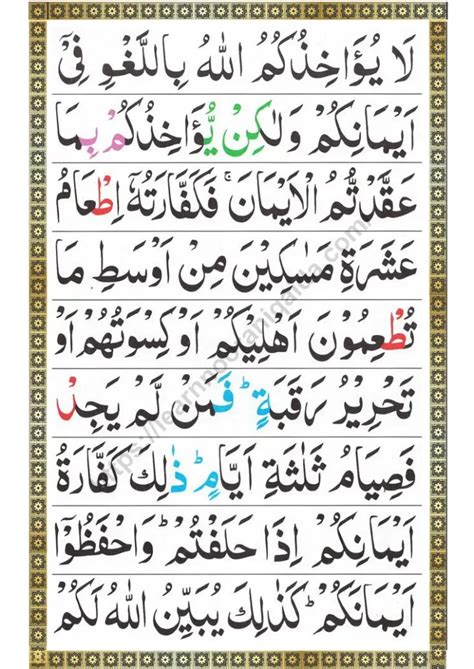 لَا يُؤَاخِذُكُمُ اللّٰهُ بِاللَّغْوِ فِيْٓ
اَيْمَانِكُمْ وَلٰكِنْ يُّؤَاخِذُكُمْ بِمَا
عَقَّدْتُّمُ الْاَيْمَانَ ۚ فَكَفَّارَتُهٗٓ اِطْعَامُ
عَشَرَةِ مَسٰكِيْنَ مِنْ اَوْسَطِ مَا
تُطْعِمُوْنَ اَهْلِيْكُمْ اَوْ كِسْوَتُهُمْ اَوْ
تَحْرِيْرُ رَقَبَةٍ ؕ فَمَنْ لَّمْ يَجِدْ
فَصِيَامُ ثَلٰثَةِ اَيَّامٍ ؕ ذٰلِكَ كَفَّارَةُ
اَيْمَانِكُمْ اِذَا حَلَفْتُمْ ؕ وَاحْفَظُوْٓا
اَيْمَانَكُمْ ؕ كَذٰلِكَ يُبَيِّنُ اللّٰهُ لَكُمْ
https://learnnooraniqaida.com/